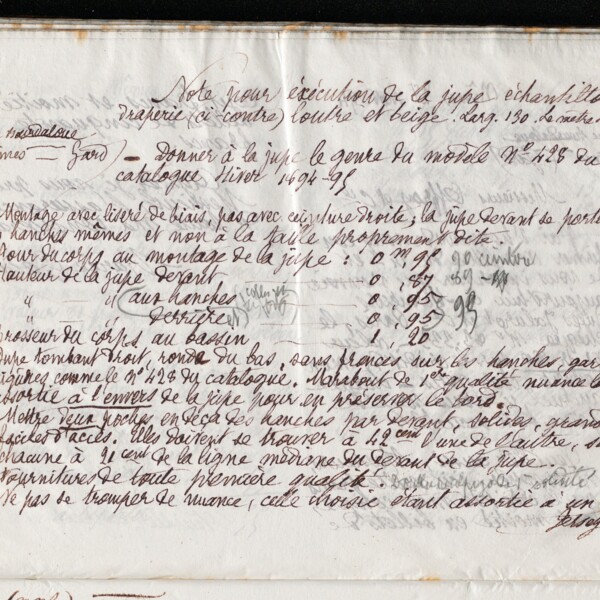 Note pour exécution de la jupe échantillo
draperie (ci-contre) loutre et beige. Larg. 130. Le metre
Bourdaloue
Gard) — Donner à la jupe le genre du modèle n° 428 du
catalogue Hiver 1894-95
Montage avec liseré de biais, pas avec ceinture droite; la jupe devant se porte
hanches mêmes et non à la taille proprement dite.
our du corps au montage de la jupe : 0 m, 95 90
Hauteur de la jupe devant 0, 87 89
" — " aux hanches — 0, 95 99
" derrière — 0, 95
rosseur du corps au bassin — 1, 20
tombant droit, ronde du bas, sans fronces sur les hanches, gar
comme le n° 428 du catalogue. Marabout de 1ere qualité nuance
assortie à l'envers de la jupe pour en préserver le bord.
Mettre deux poches en deçà des hanches par devant, solides, grand
faciles d'accès. Elles doivent se trouver à 42 cent l'une de l'autre, s
chacune à 21 cent de la ligne médiane du devant de la jupe.
Fournitures de toute première qualité.
Ne pas se tromper de nuance, celle choisie étant assortie à un
jersey